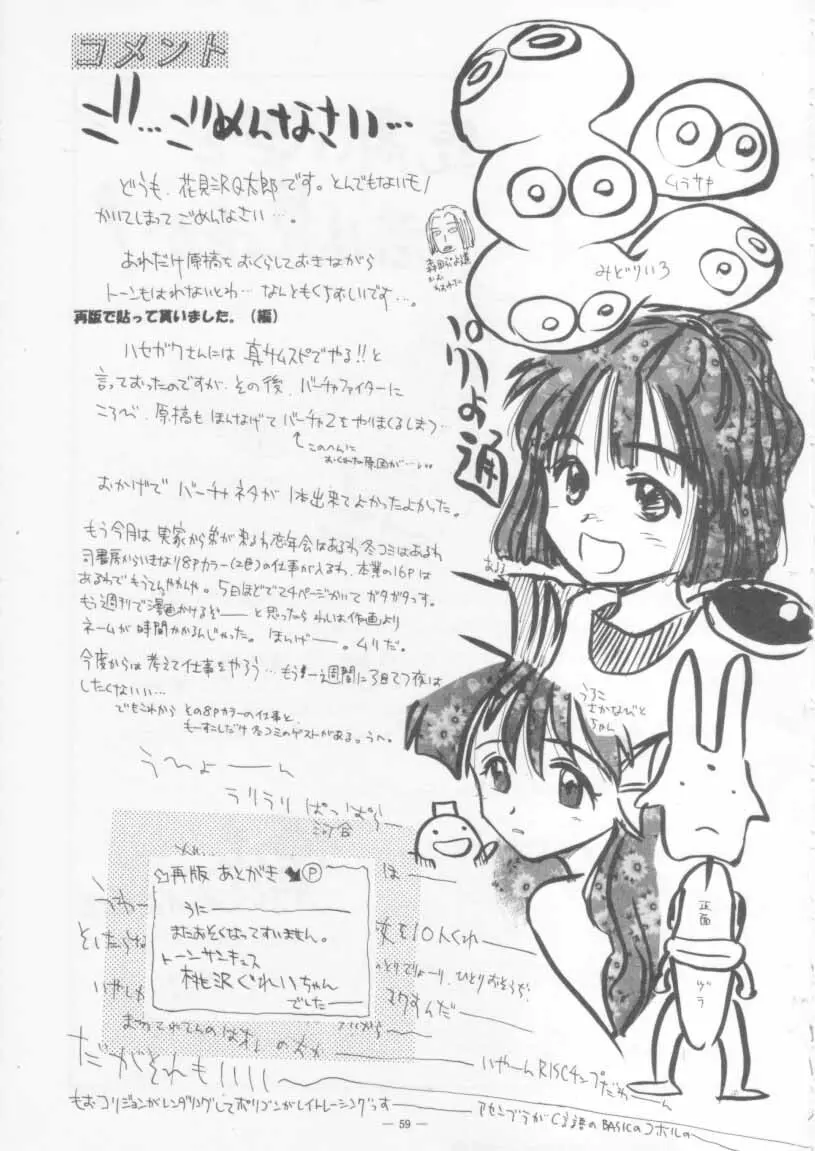 コメント
ゴ…ごめんなさい…
どうも、花見沢Q太郎です。とんでもないモノ
かいてしまってごめんなさい…。
あれだけ原稿をおくらしておきながら
トーンもはれないとわ…なんともくちおしいです…。
再版で貼って貰いました。(編)
ハセガワさんには真サムスピでやる!!と
言っておったのですが、その後、バーチャファイターに
ころび、原稿もほんなげてバーチャ2をやりまくるしまつ…
↑このへんに
おくれた原因が…
おかげでバーチャネタが1本出来てよかったよかった。
もう今月は実家から弟が来るわ忘年会はあるわ冬コミはあるわ
司書房からいきなり8Pカラー(2色)の仕事が入るわ、本業の16Pは
あるわでもうてんやわんや。5日ほどで24ページかいてガタガタっす。
もう週刊で漫画かけるぞ──と思ったらわしは作画より
ネームが時間かかるんじゃった。ほんげー。ムリだ。
今度からは考えて仕事をやろう…もう一週間に3日てつ夜は
したくないい…
でもこれからその8Pカラーの仕事と、
もーすこしだけ冬コミのゲストがある。うへ。
うーひょーーん
ラリラリぱっぱら
河合
は
再版 あとがき P
うに
またおそくなってすいません。
トーンサンキュス
桃沢ぐれいちゃん
でした
うわー
そしたらね
いやしか
変を10人くれ
ひとりおそうぞ!
マクすんだ
だがそれも
いやーんRISCチップだわーーん
もおコリジョンがレンダリングしてポリゴンがレイトレーシングっす
アセンブラがC言語のBASICのコボルの
くらさわ
みどりいろ
通
うろこ
さかなびと
ちゃん
正面
ヅラ
— 59 —